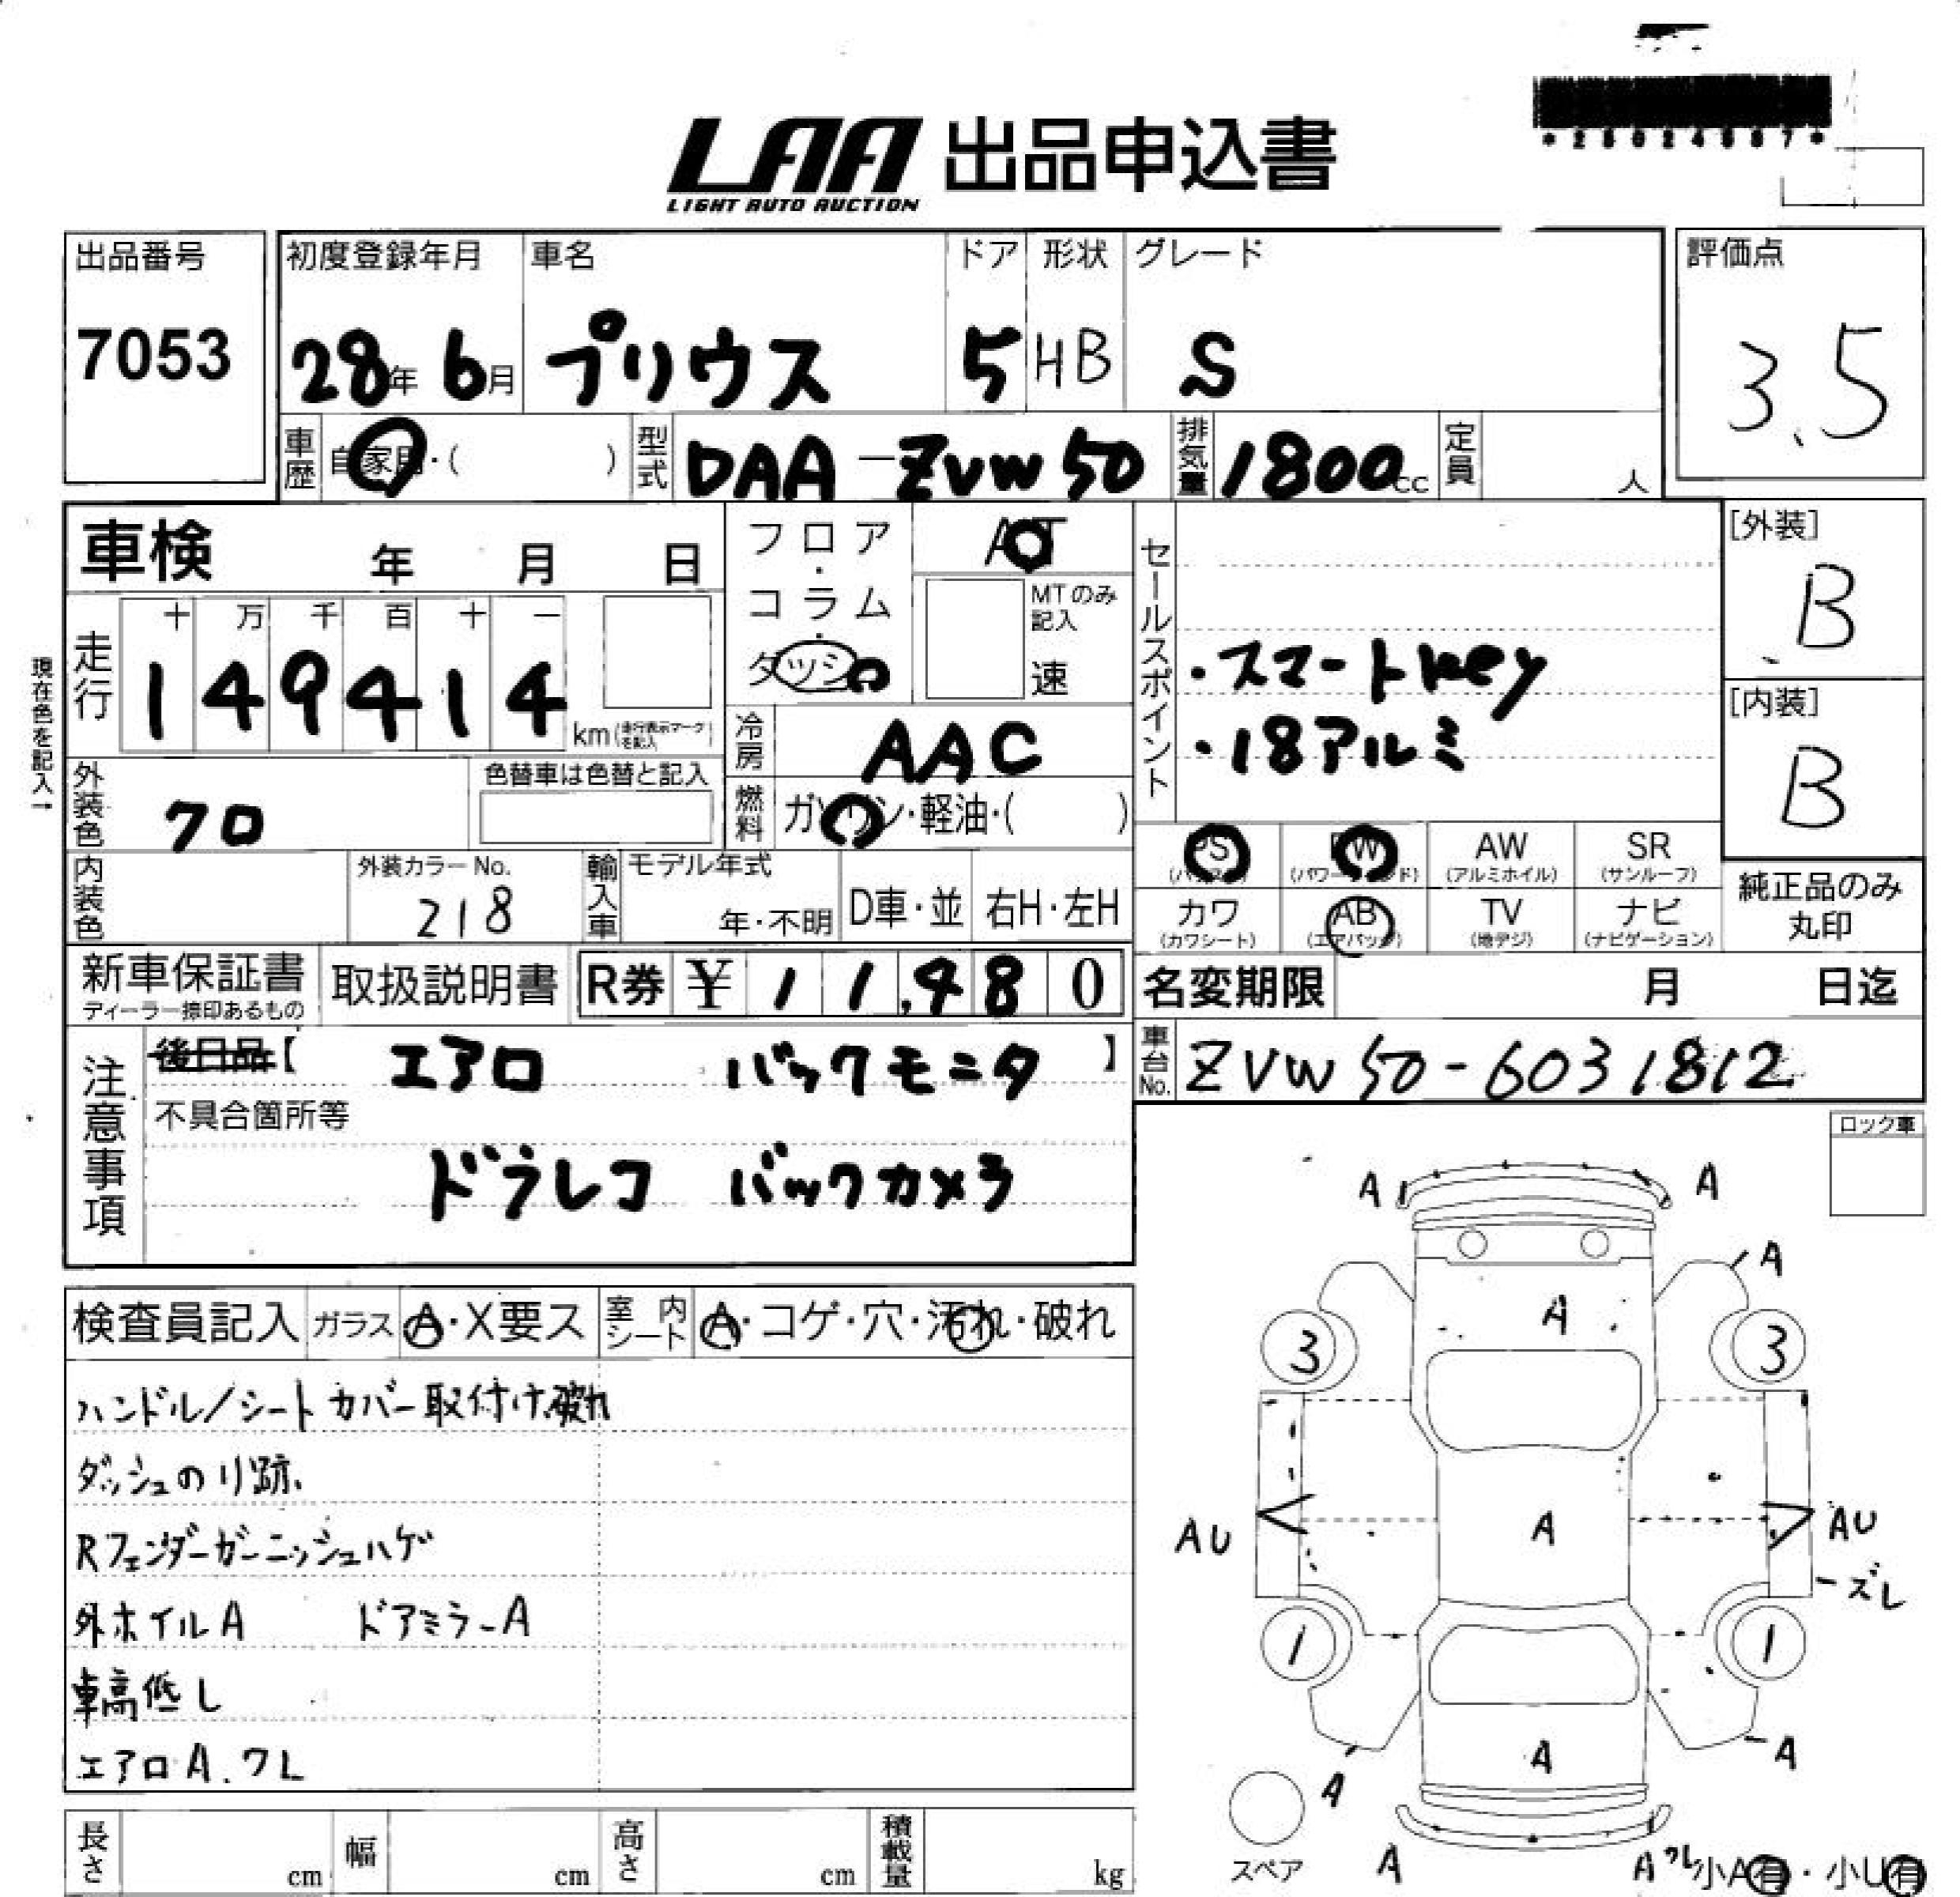 LAA 出品申込書
LIGHT AUTO AUCTION
出品番号
7053
初度登録年月
28年 6月
車名
プリウス
ドア
5
形状
HB
グレード
S
評価点
3.5
車歴 自家用・( )
型式 DAA-ZVW50
排気量 1800cc
定員 人
車検 年 月 日
フロア・コラム・ダッシュ
AT
MTのみ記入
速
走行
十 万 千 百 十 一
1 4 9 4 1 4 km (走行表示マークを記入)
現在色を記入→
冷房 AAC
燃料 ガソリン・軽油・( )
セールスポイント
・スマートkey
・18アルミ
[外装]
B
[内装]
B
外装色 クロ
色替車は色替と記入
内装色
外装カラーNo.
218
輸入車
モデル年式
年・不明
D車・並
右H・左H
PS
PW
AW (アルミホイル)
SR (サンルーフ)
カワ (カワシート)
AB (エアバッグ)
TV (地デジ)
ナビ (ナビゲーション)
純正品のみ丸印
新車保証書
ディーラー捺印あるもの
取扱説明書
R券 ¥ 11,480
名変期限 月 日迄
注意事項
後日品【 エアロ バックモニタ 】
不具合箇所等
ドラレコ バックカメラ
車台No. ZVW50-6031812
ロック車
検査員記入
ガラス A・X要ス
室内シート A・コゲ・穴・汚れ・破れ
ハンドル/シートカバー取付け.破れ
ダッシュのり跡.
Rフェンダーガーニッシュハゲ
外ホイルA ドアミラーA
車高低し
エアロA.ワレ
A A
A
A
3 3
AU A AU
-ズレ
1 1
A
A A
A Aワレ
スペア
小A有・小U有
長さ cm
幅 cm
高さ cm
積載量 kg